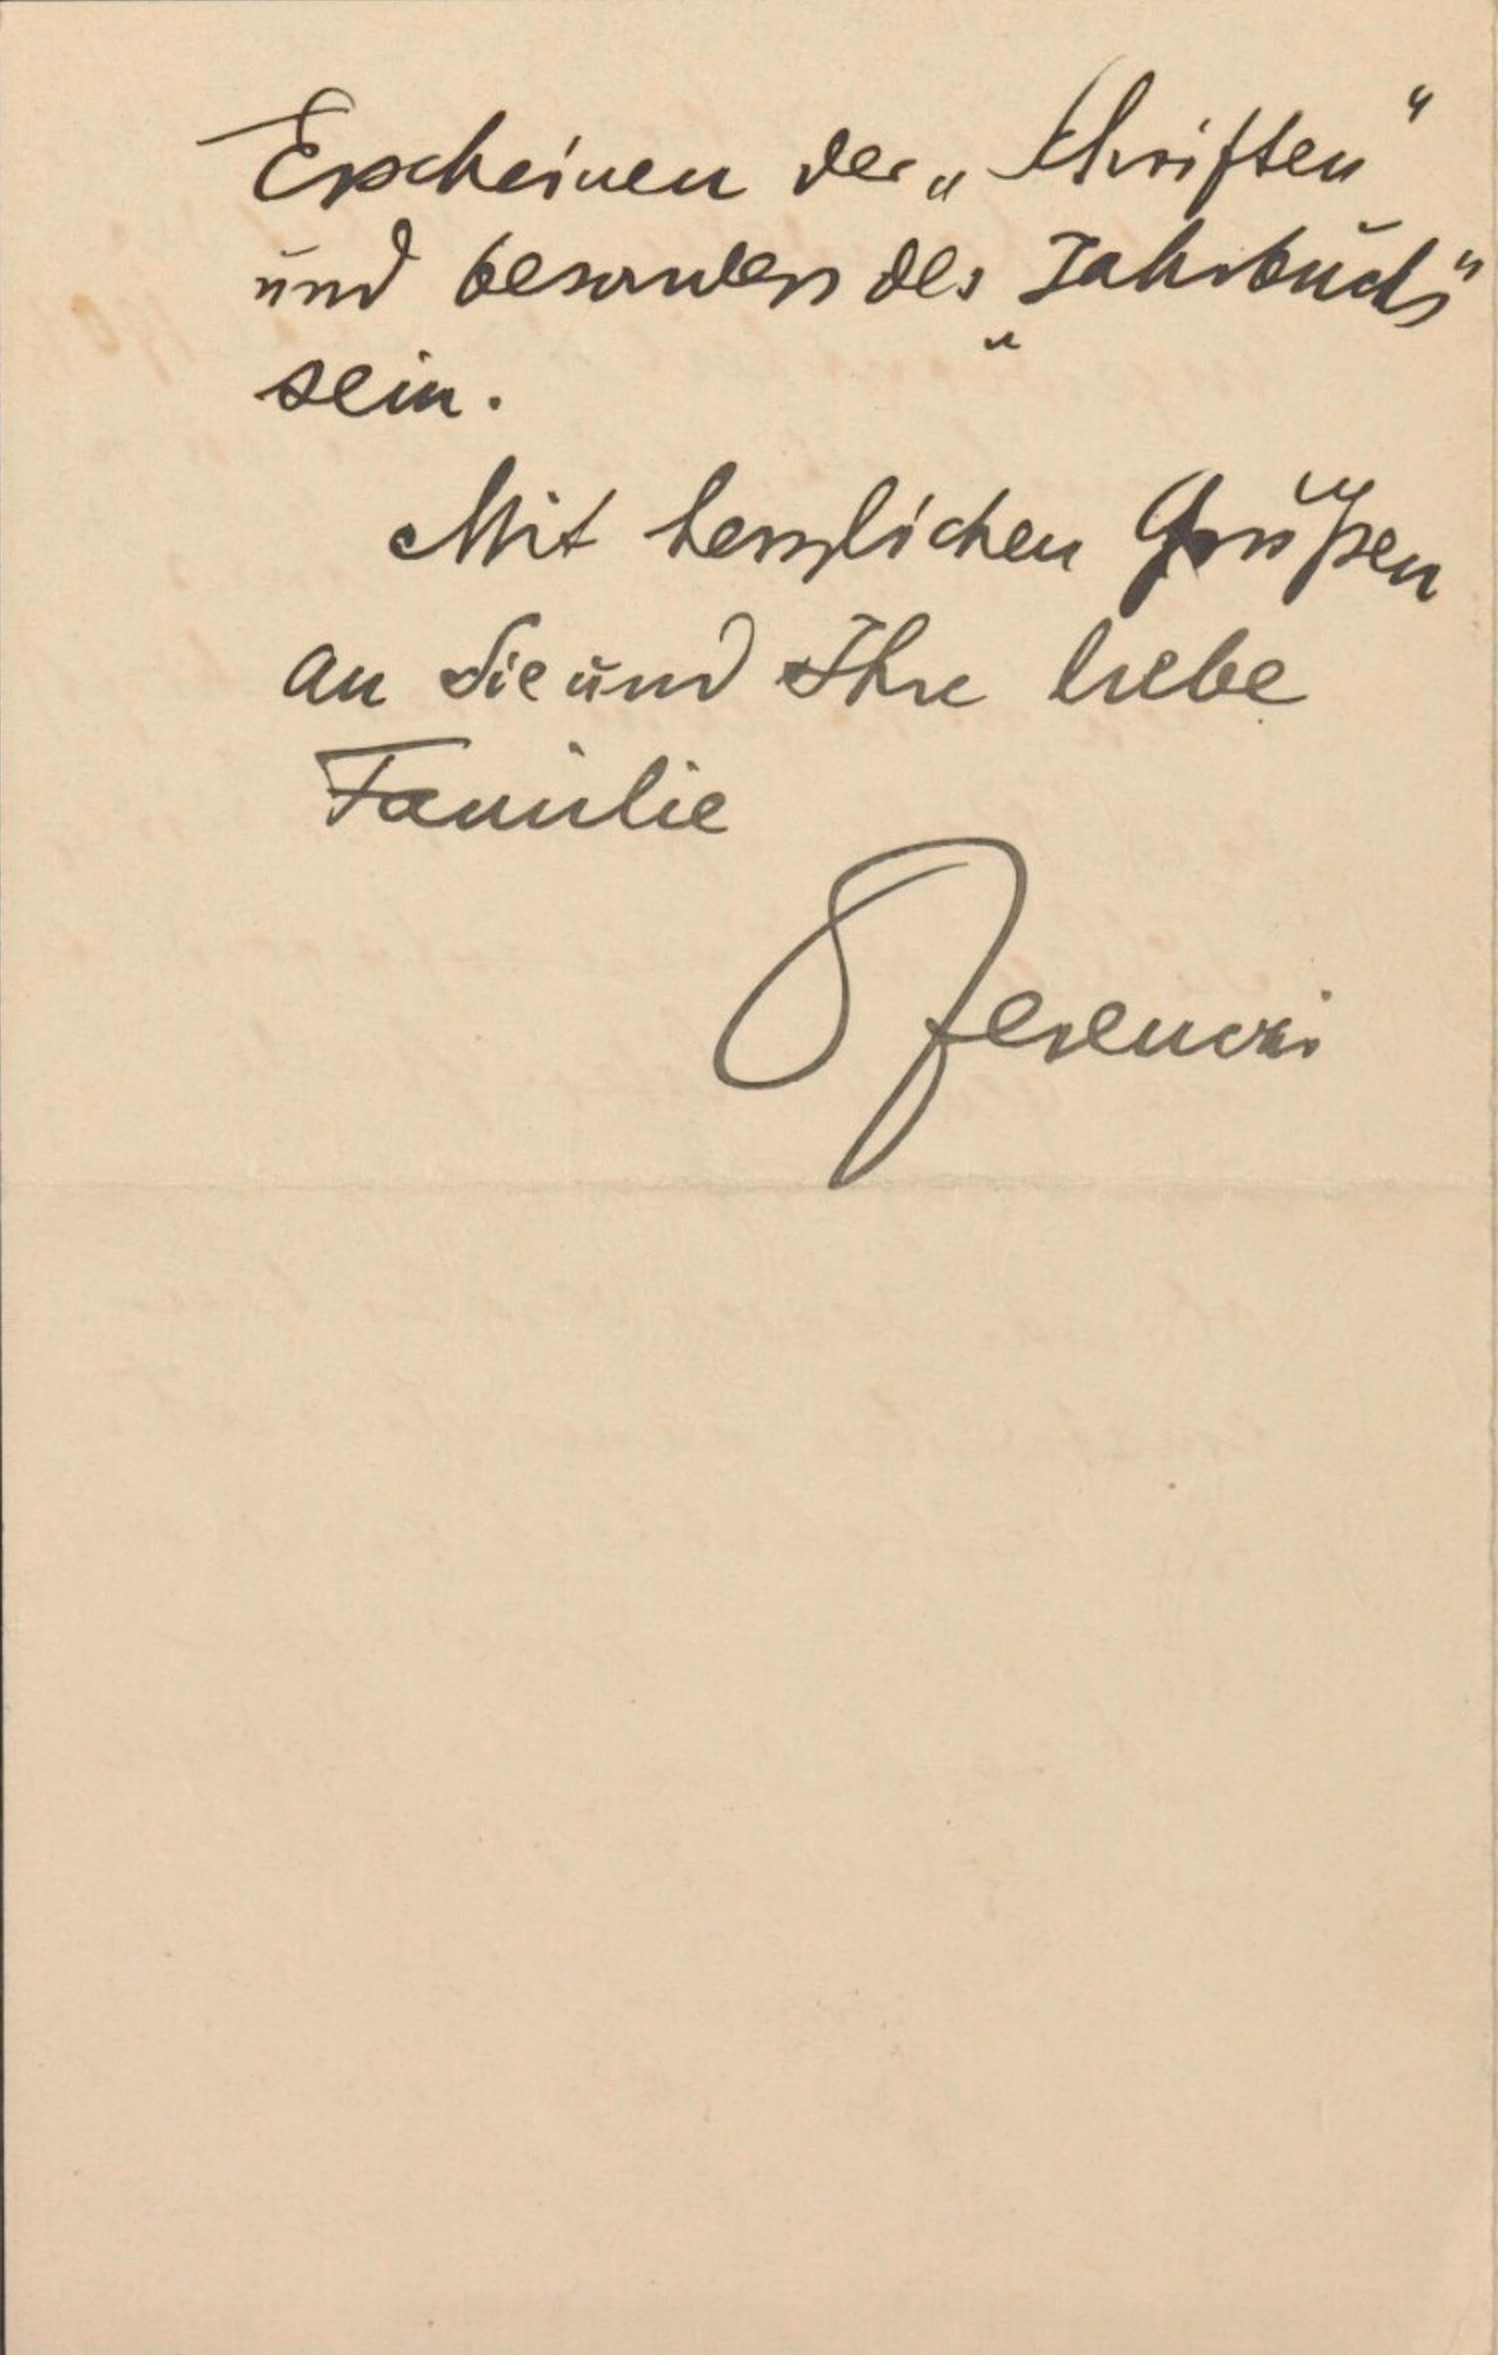 Erscheinen der „Schriften“
und besonders des „Jahrbuchs“
sein.
Mit herzlichen Grüßen
an Sie und Ihre liebe
Familie
Ferenczi